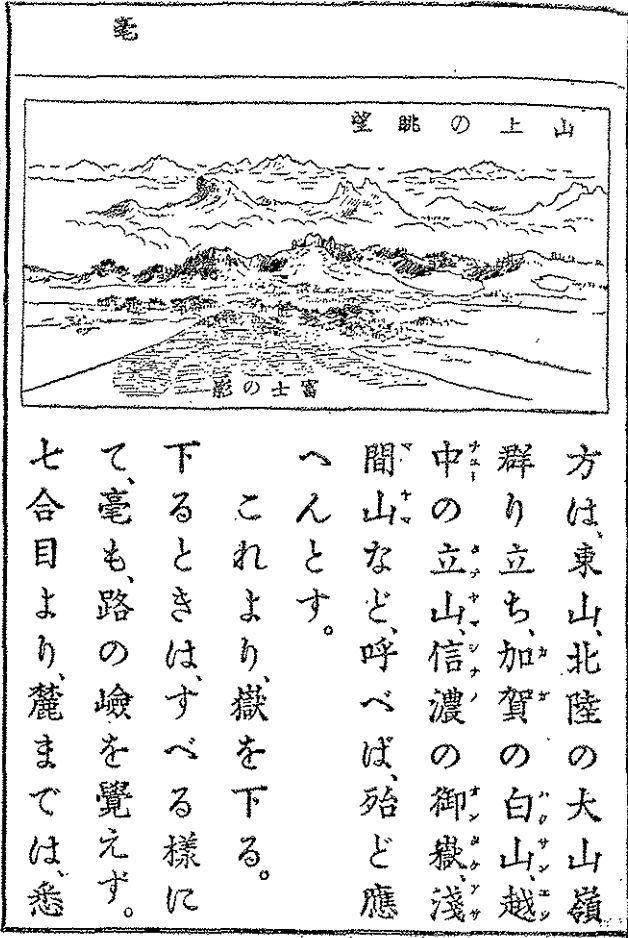 毫
山上の眺望
富士の影
方は、東山、北陸の大山嶺
群り立ち、加賀の白山、越
中の立山、信濃の御嶽、淺
間山など、呼べば、殆ど應
へんとす。
これより、嶽を下る。
下るときは、すべる樣に
て、毫も、路の嶮を覺えず。
七合目より、麓までは、悉